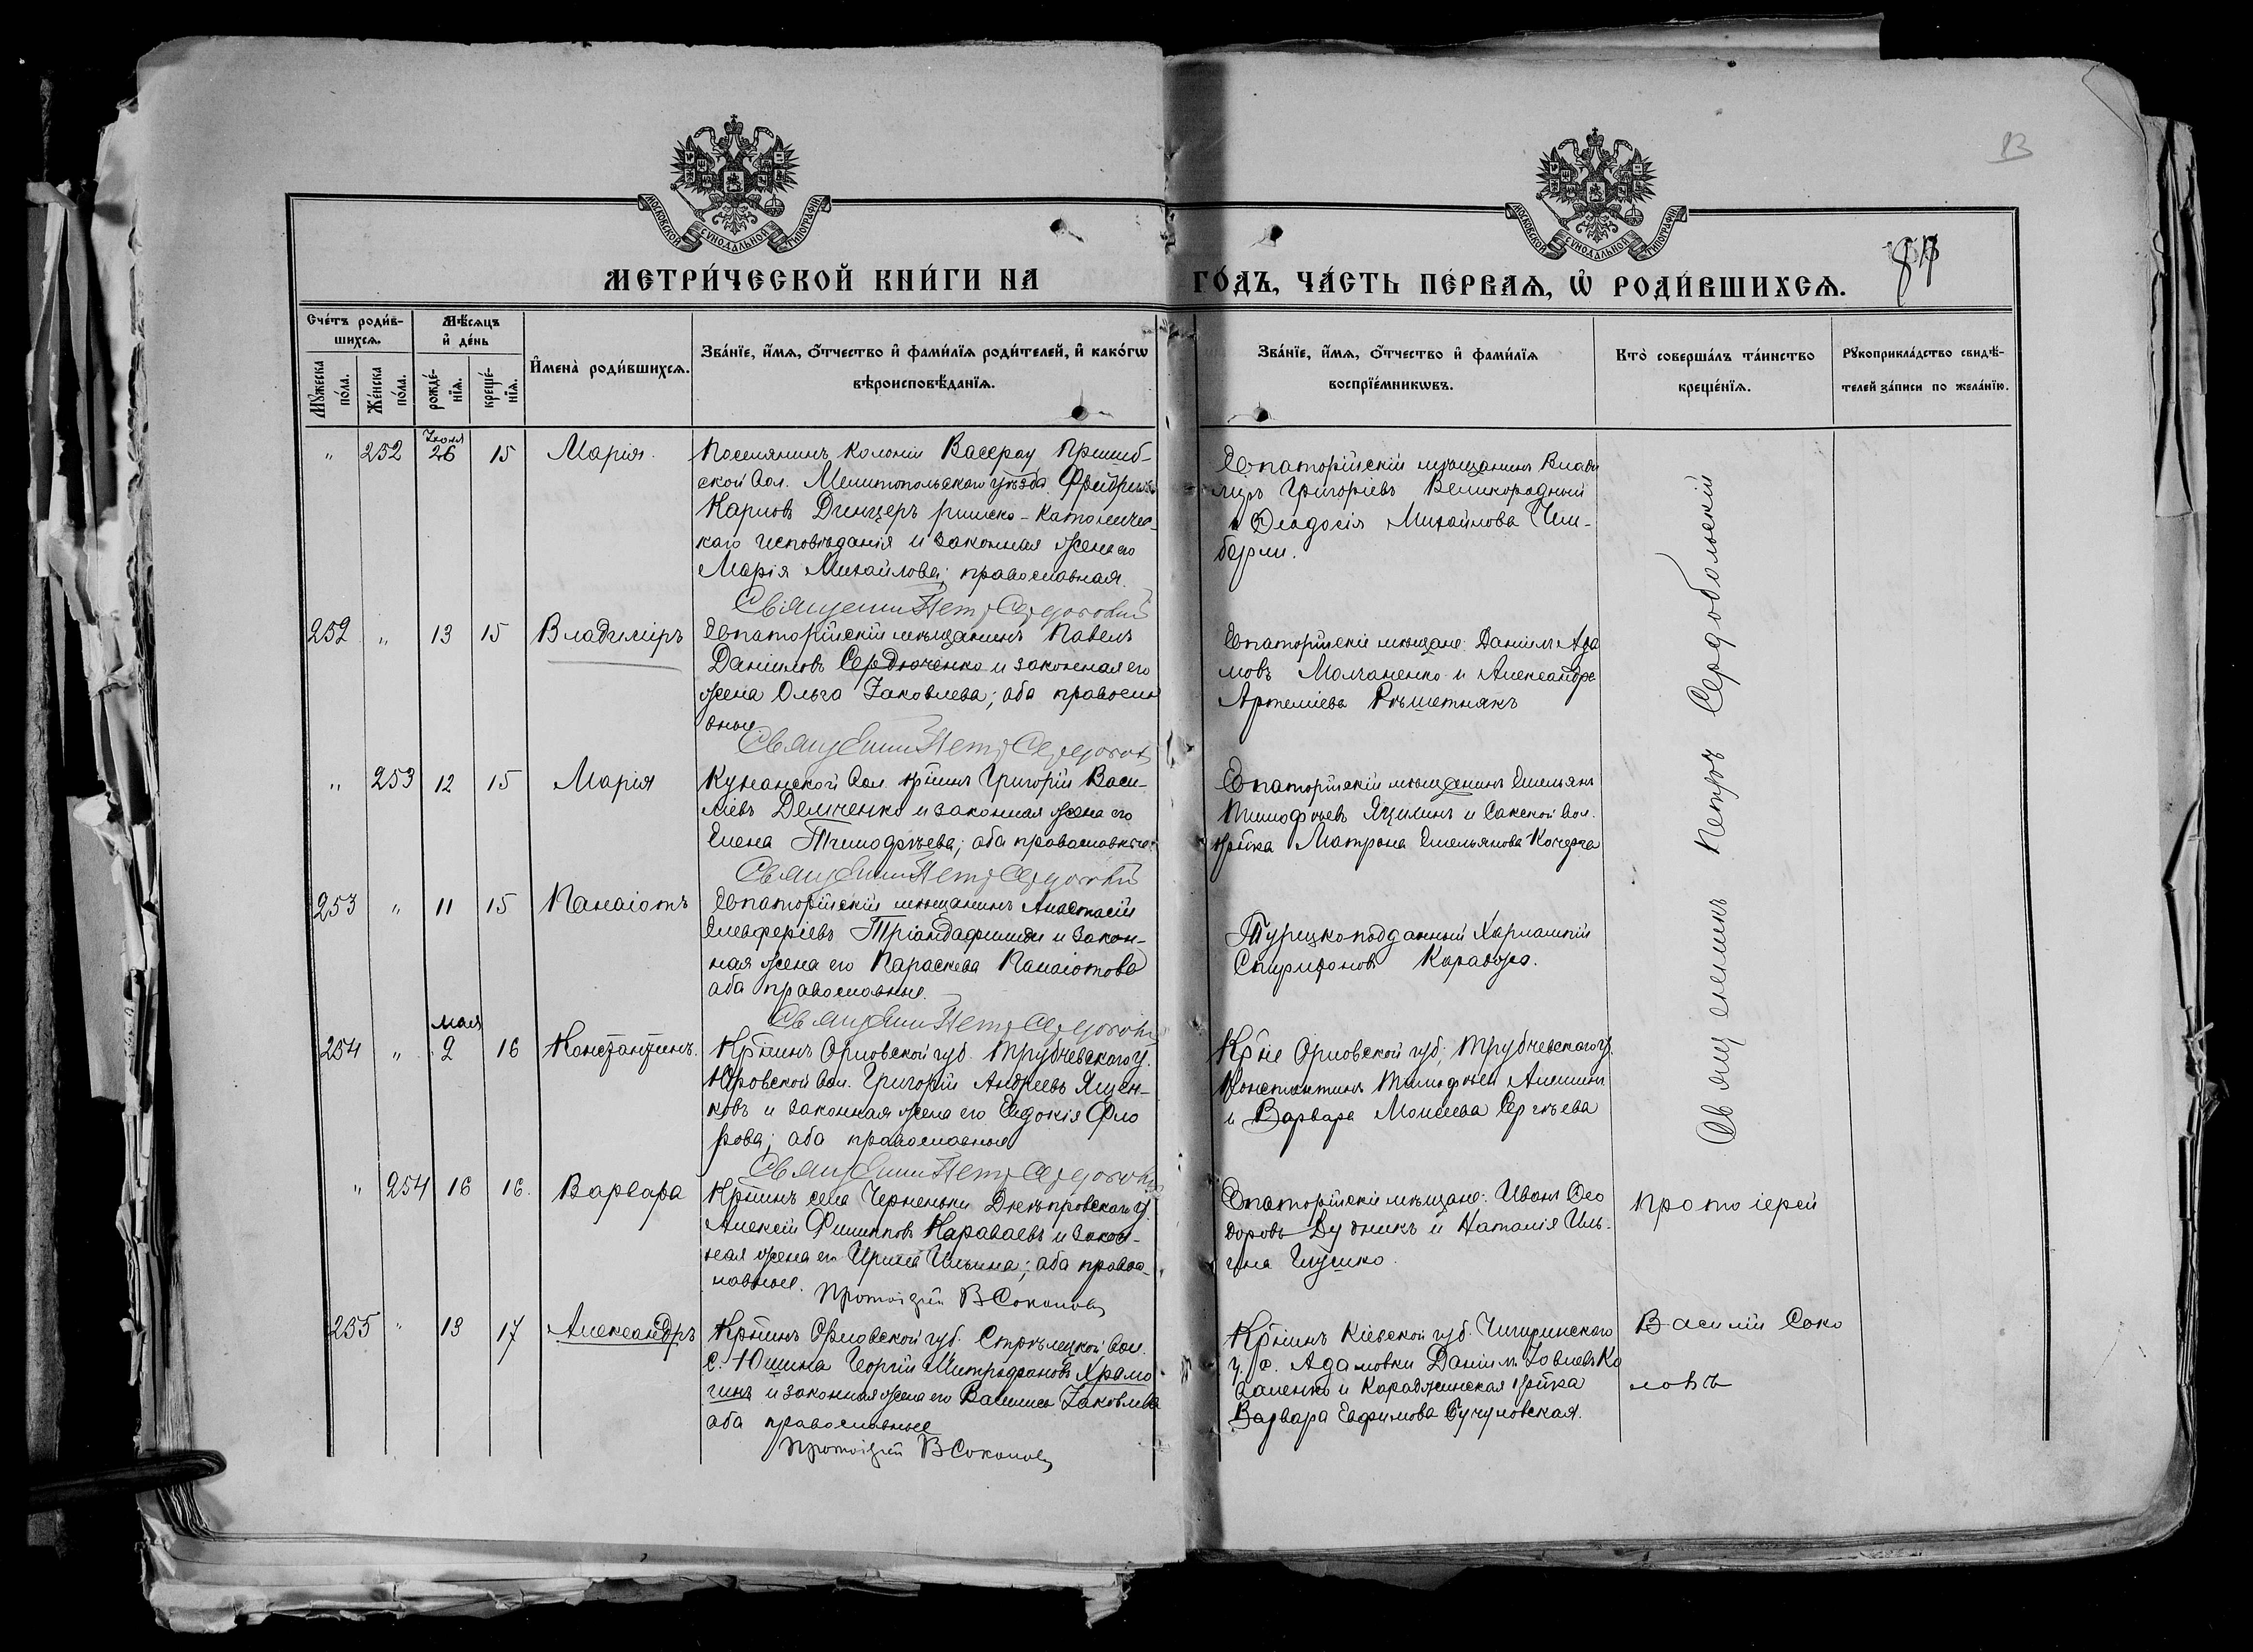 МОСКОВСКОЙ СѴНОДАЛЬНОЙ ТИПОГРАФІИ
МОСКОВСКОЙ СѴНОДАЛЬНОЙ ТИПОГРАФІИ
МЕТРИ́ЧЕСКОЙ КНИ́ГИ НА
ГО́ДЪ, ЧА́СТЬ ПЕ́РВАѦ, Ѡ҆ РОДИ́ВШИХСѦ.
Сче́тъ роди́в-
шихсѧ.
Мꙋ́жеска по́ла.
Же́нска по́ла.
Мѣ́сѧцъ
и҆ де́нь
рожде́-нїѧ.
креще́-нїѧ.
И҆мена̀ роди́вшихсѧ.
Зва́нїе, и҆́мѧ, ѻ҆́тчество и҆ фами́лїѧ роди́телей, и҆ како́гѡ
вѣроисповѣ́данїѧ.
Зва́нїе, и҆́мѧ, ѻ҆́тчество и҆ фами́лїѧ
воспрїе́мникѡвъ.
Кто̀ соверша́лъ та́инство
креще́нїѧ.
Рꙋкоприкла́дство свидѣ́-
телей за́писи по жела́нїю.
" 252 Іюня 26 15 Марія.
Поселянинъ колоніи Васерау Пришиб-
ской вол. Мелитопольскаго уѣзда
Карловъ Динцеръ римско-католичес-
каго исповѣданія и законная жена его
Марія Михайлова; православная.
Евпаторійскій мѣщанинъ Влади
міръ Григоріевъ Великородный
и Ѳеодосія Михайлова
252 " 13 15 Владиміръ
Евпаторійскій мѣщанинъ Павелъ
Даніиловъ Сердюченко и законная его
жена Ольга Іаковлева; оба правосла
вные
Евпаторійскіе мѣщане: Даніилъ Ада
мовъ Молчаненко и Александра
Артеміева Рѣшетнякъ
" 253 12 15 Марія
вол. кр̃нинъ Григорій Васи-
ліевъ Демченко и законная жена его
Елена Тимофѣева; оба православные.
Евпаторійскій мѣщанинъ Емельянъ
Тимофѣевъ и Сакской вол.
кр̃нка Матрона Емельянова Кочерга
253 " 11 15 Панаіотъ
Евпаторійскій мѣщанинъ Анастасій
Елевферіевъ Тріандафилиди и закон-
ная жена его Параскева Панаіотова
оба православные.
Турецкоподданный Харлампій
Спиридоновъ
254 " мая 2 16 Константинъ.
Кр̃нинъ Орловской губ. Трубчевскаго у.
Юровской вол. Григорій Андреевъ Ящен-
ковъ и законная жена его Евдокія Фло
рова; оба православные
Кр̃не Орловской губ; Трубчевскаго у.
Константинъ Тимофѣевъ Алешинъ
и Варвара Моисеева Сергѣева
Священникъ Петръ Сердобольскій
" 254 16 16. Варвара
Кр̃нинъ села Черненьки Днѣпровскаго у.
Алексій Филипповъ Караваевъ и закон-
ная жена его Ирина Ильина; оба правос-
лавные.
Протоіерей В Соколовъ
Евпаторійскіе мѣщане: Иванъ Ѳео
доровъ Дудникъ и Наталія Иль-
ина Глушко.
Протоіерей
255 " 13 17 Александръ
Кр̃нинъ Орловской губ. Стрѣлецкой вол.
с. Юшина Георгій Митрофановъ Храмо
гинъ и законная жена его Іаковлева
оба православные
Протоіерей В Соколовъ
Кр̃нинъ Кіевской губ. Чигиринскаго
у. с. Адамовки Даніилъ Іовлевъ Ко
валенко и Караджинская кр̃нка
Варвара Евфимова
Василій Соко
ловъ